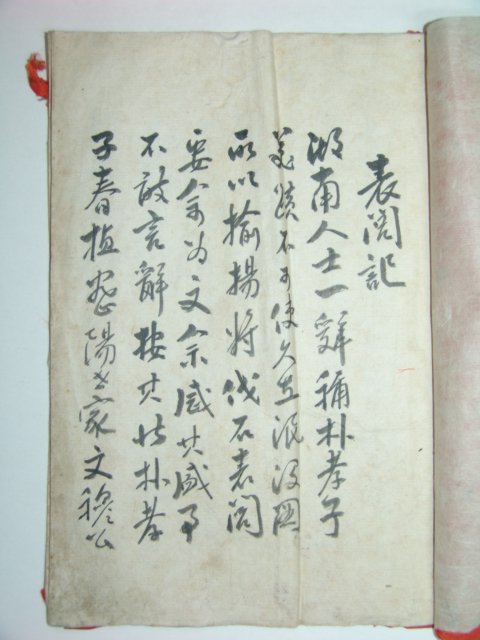 表閣記
湖南人士一辭稱朴孝子
美蹟不可使久在泯沒圖
所以揄揚將伐石表閣
要余为文余感其盛事
不敢言辭按其狀朴孝
子春植密陽世家文穆公